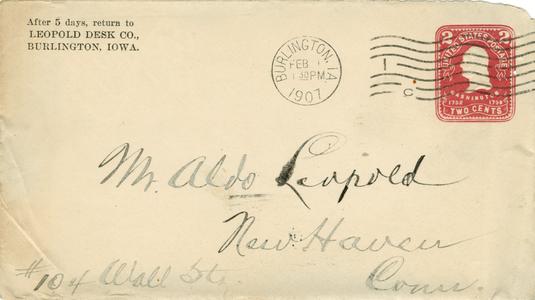 After 5 days, return to
LEOPOLD DESK CO.,
BURLINGTON, IOWA.
BURLINGTON, IA.
FEB
30 PM
1907
1
C
2 2
UNITED STATES POSTAGE
WASHINGTON
1732 1799
TWO CENTS
Mr. Aldo Leopold
New Haven
#104 Wall St. Conn.